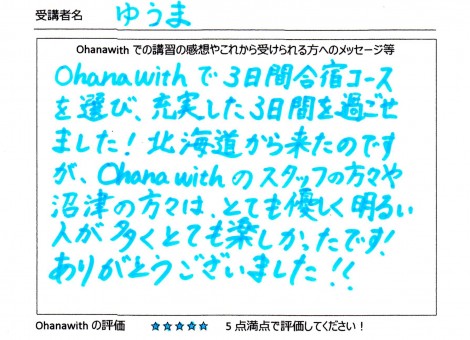 受講者名 ゆうま
Ohanawith での講習の感想やこれから受けられる方へのメッセージ等
Ohanawithで3日間合宿コース
を選び、充実した3日間を過ごせ
ました！北海道から来たのです
が、Ohana withのスタッフの方々や
沼津の方々は、とても優しく明るい
人が多くとても楽しかったです！
ありがとうございました！！
Ohanawith の評価 ★★★★★ 5 点満点で評価してください！